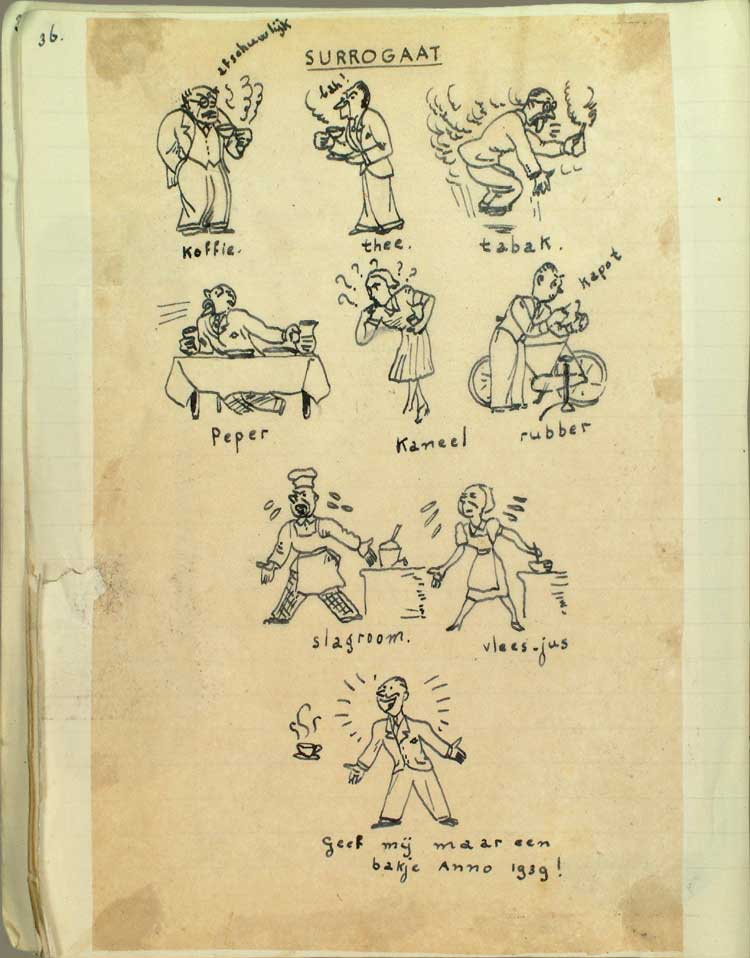 36.
SURROGAAT
afschuwlijk
bah!
koffie.
thee.
tabak.
kapot
Peper
Kaneel
rubber
slagroom.
vlees-jus
Geef mij maar een
bakje Anno 1939!